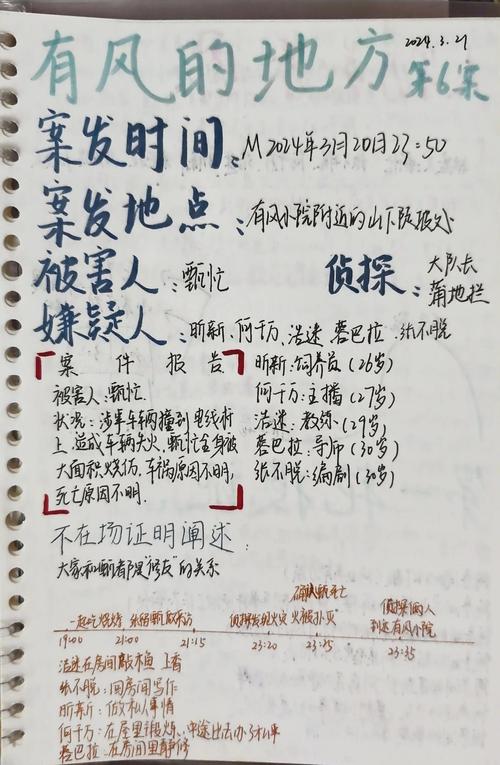 2024.3.21
有风的地方 第6案
案发时间:M2024年3月20日23:50
案发地点:有风小院附近的山下陡坡处
被害人:甄忙 侦探:大队长 蒲地拦
嫌疑人:昕新、何千万、浩迷 蓉巴拉、张不脱
案件报告
被害人:甄忙.
状况:涉事车辆撞到电线杆
上,造成车辆失火,甄忙全身被
大面积烧伤,车祸原因不明,
死亡原因不明.
昕新:饲养员(26岁)
何千万:主播(27岁)
浩迷:教练(29岁)
蓉巴拉:导师(30岁)
张不脱:编剧(30岁)
不在场证明阐述:
大家和甄都是“修友”的关系
确认甄死亡
一起吃烧烤 侦探发现火灾 火被扑灭 侦探们两人
到达有风小院
19:00 21:00 21:15 23:20 23:25 23:35
浩迷在房间敲木鱼
张不脱:回房间写作
昕新:做私人事情
何千万:在屋里锻炼,中途出去办了私事
蓉巴拉:在房间里静修